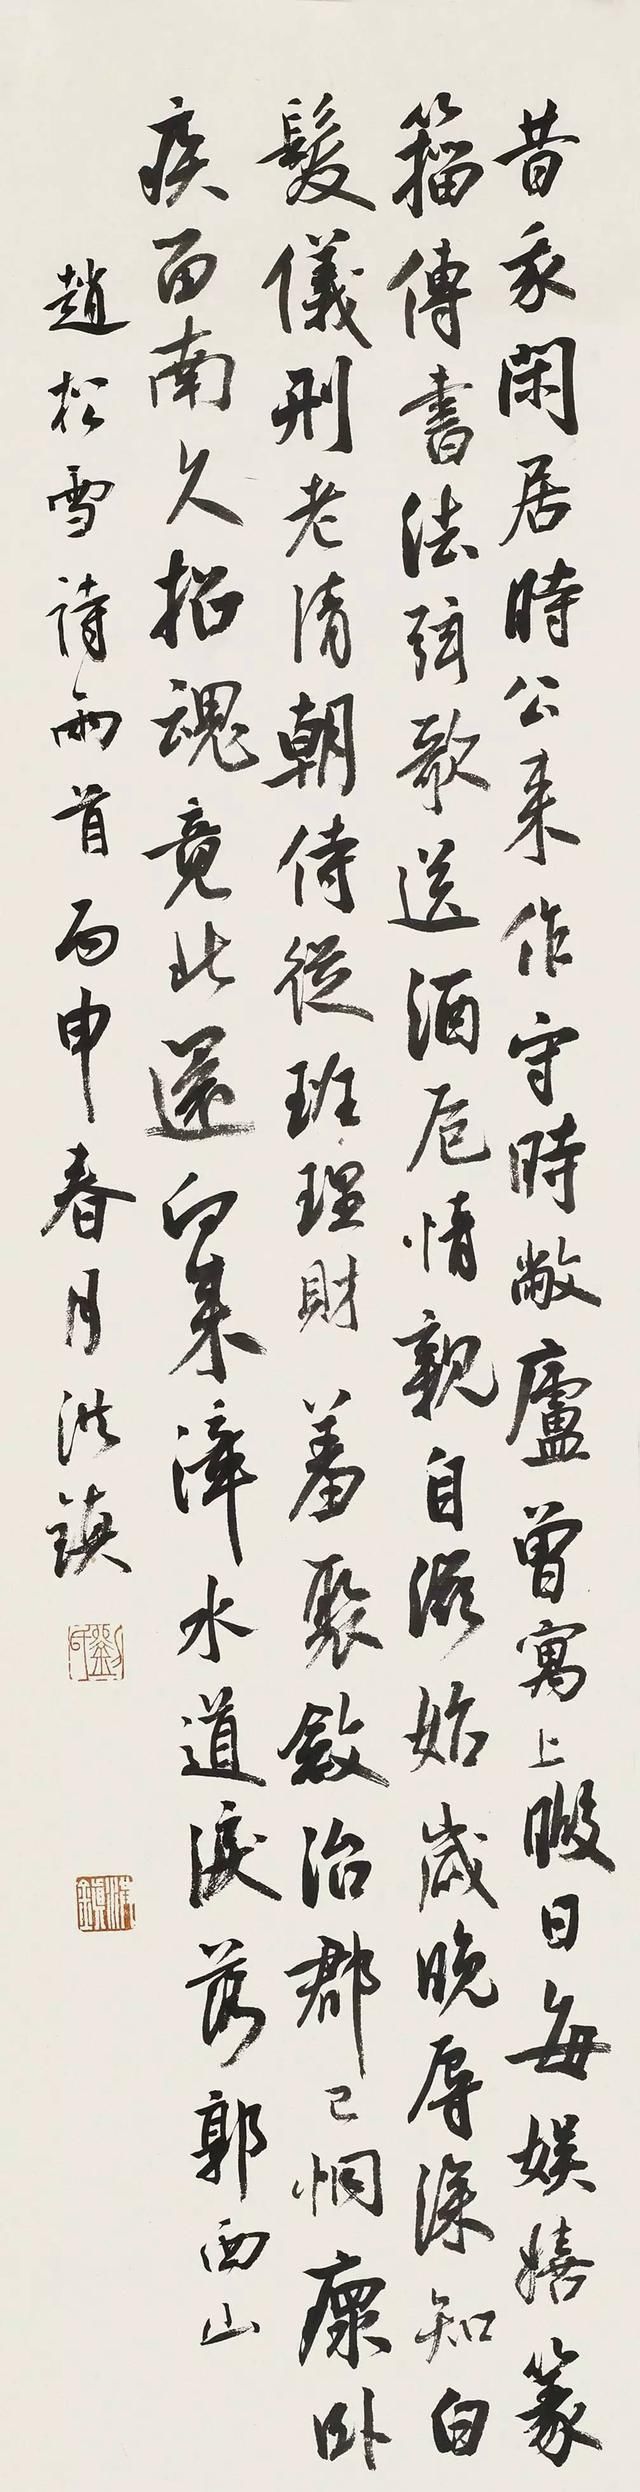 昔我閑居時公来作守時敝廬曾寓上暇日每娱嬉篆
籀傳書法弦歌送酒卮情親自滋始歲晚辱深知白
髮儀刑老清朝侍從班理財羞聚斂治郡已恫瘝卧
疾西南久招魂竟此還向来漳水道淚落郭西山
趙松雪詩兩首丙申春月洪鎮
劉
洪鎮